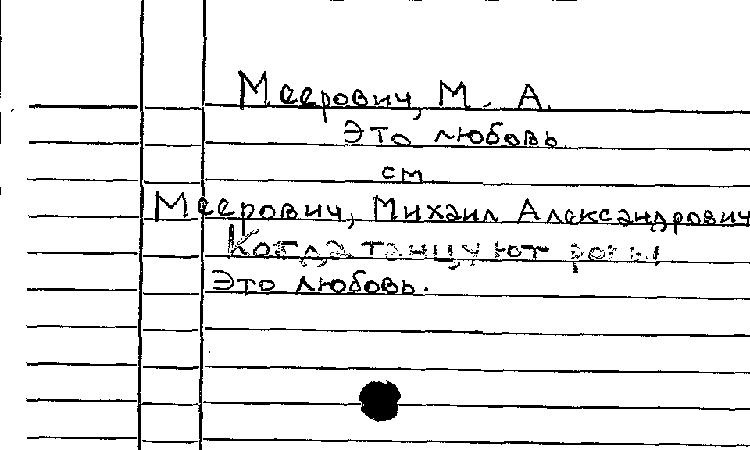 Меерович, М. А.
Это любовь
см
Меерович, Михаил Александрович
Когда танцуют розы
Это любовь.